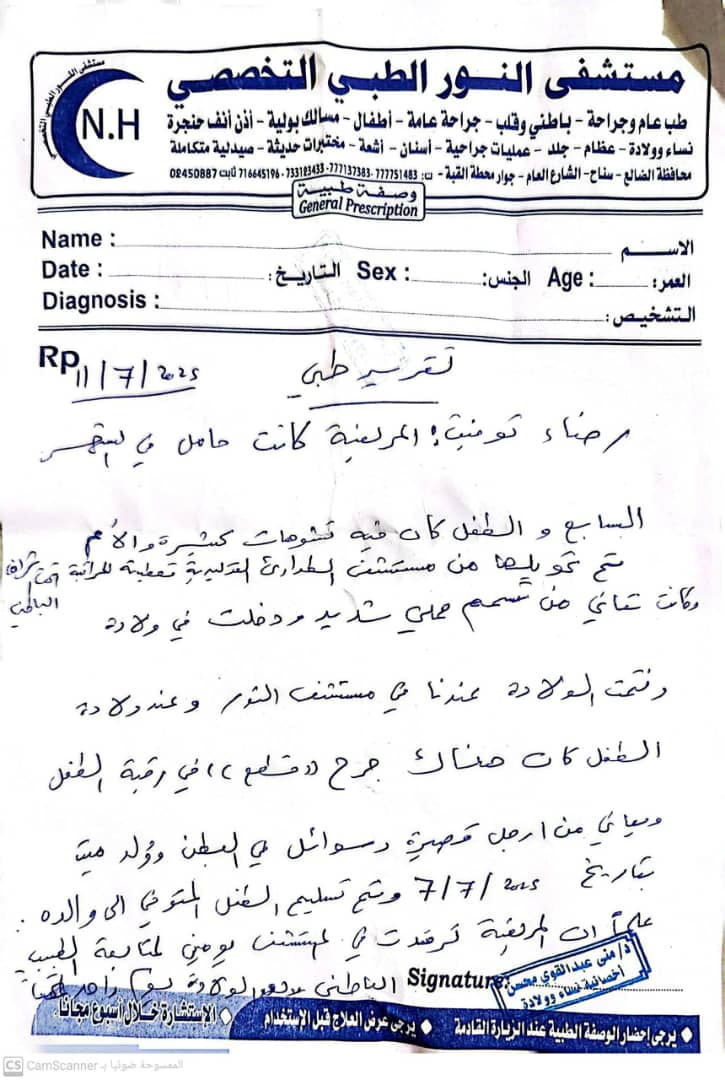 مستشفى النور الطبي التخصصي
N.H
مستشفى النور الطبي التخصصي
طب عام وجراحة - باطني وقلب - جراحة عامة - أطفال - مسالك بولية - أذن أنف حنجرة
نساء وولادة - عظام - جلد - عمليات جراحية - أسنان - أشعة - مختبرات حديثة - صيدلية متكاملة
محافظة الضالع - سناح - الشارع العام - جوار محطة القبة - ت: 777751483 - 777137383 - 733123433 - 716645196 ثابت 02450887
وصفة طبية
General Prescription
Name : الاسم
Date : التاريخ: Sex : الجنس: Age : العمر:
Diagnosis : التشخيص:
Rp 11/7/2025 تقرير طبي
المريضة كانت حامل في الشهر
السابع و الطفل كان فيه تشوهات كثيرة والأم
تم تحويلها من مستشفى الطوارئ
وكانت تعاني من تسمم حملي شديد ودخلت في ولادة
وتمت الولادة عندنا في مستشفى النور وعند ولادة
الطفل كان هناك جرح ((قطع)) في رقبة الطفل
ويعاني من ارجل قصيرة وسوائل في البطن وولد ميت
بتاريخ 7/7/2025 وتم تسليم الطفل المتوفي الى والده .
علماً ان المريضة ترقدت في المستشفى يومين لمتابعة الطبيب
الباطني الولادة
Signature:
د/ منى عبدالقوي محسن
أخصائية نساء وولادة
يرجى احضار الوصفة الطبية عند الزيارة القادمة ◆ يرجى عرض العلاج قبل الإستخدام ◆ الإستشارة خلال أسبوع مجاناً.
CS CamScanner الممسوحة ضوئيا بـ